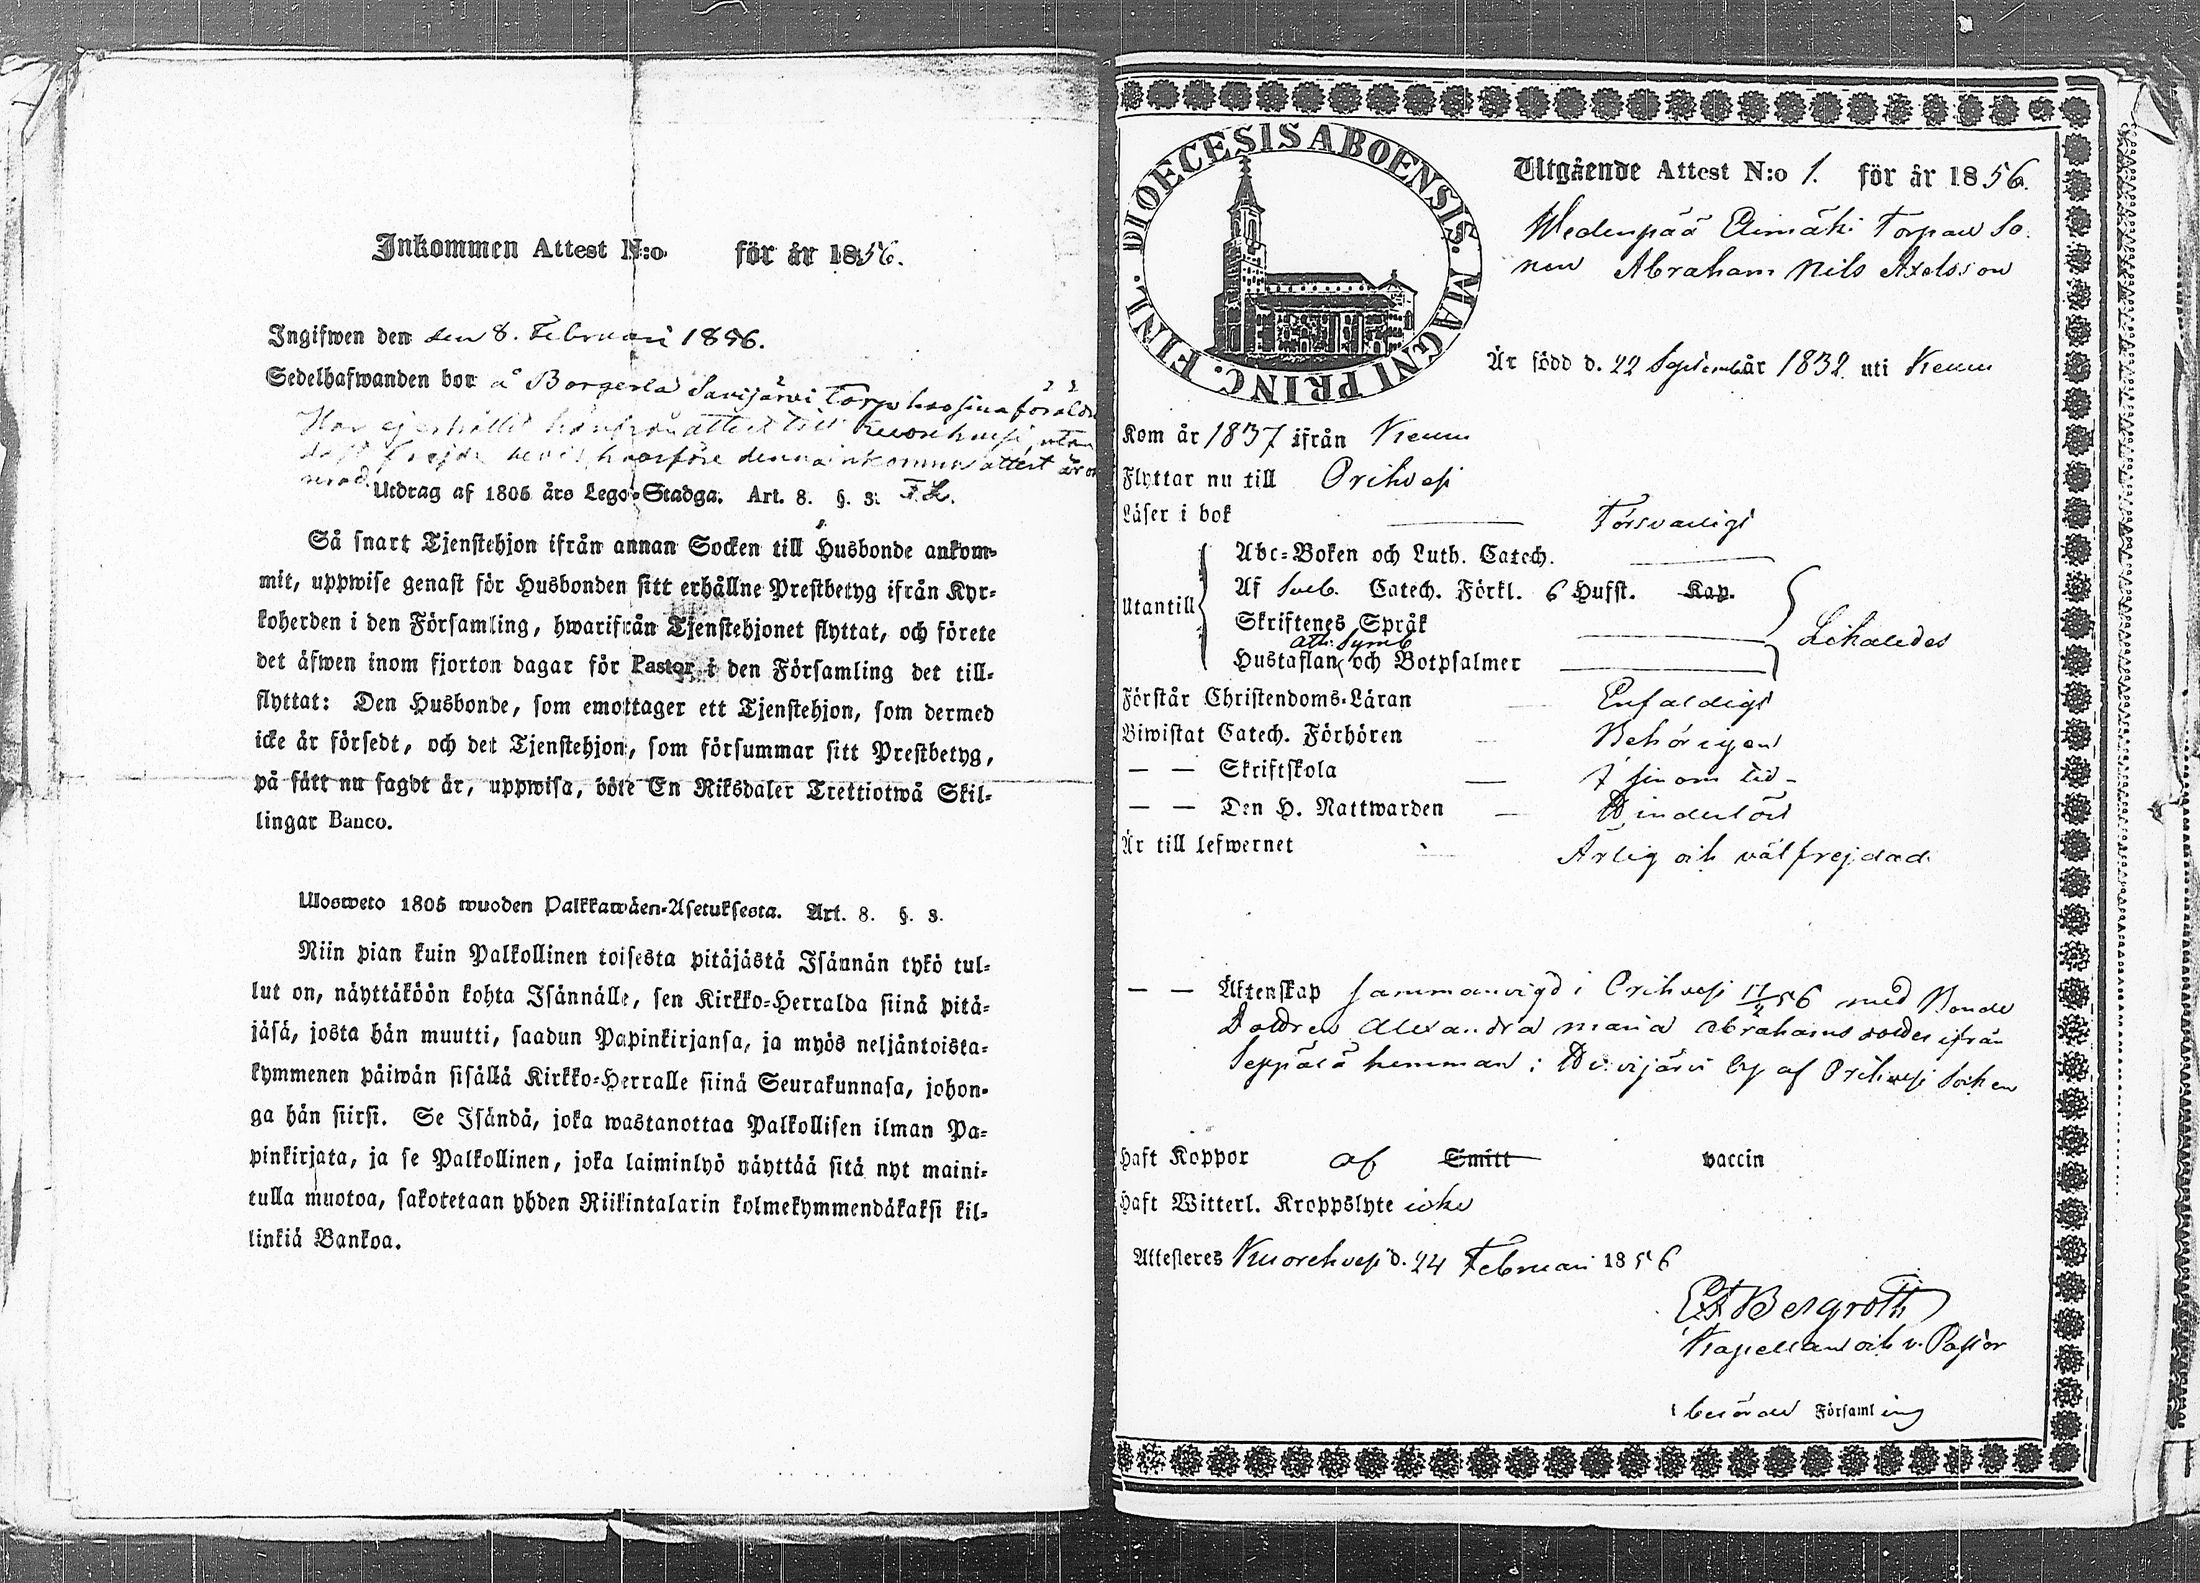 Inkommen Attest N:o för år 1856.
Ingifwen den den 8. Februari 1856.
Sedelhafwanden bor å Borgerla Savijärvi Torp hos sina föräldr
Har ej erhållit härifrån attest till Kuorehvesi, utan
frejde bevis, hvarföre denna inkomne attest är
Utdrag af 1805 års Lego-Stadga. Art. 8. §. 3.
Så snart Tjenstehjon ifrån annan Socken till Husbonde ankom-
mit, uppwise genast för Husbonden sitt erhållne Prestbetyg ifrån Kyr-
koherden i den Församling, hwarifrån Tjenstehjonet flyttat, och förete
det äfwen inom fjorton dagar för Pastor i den Församling det till-
flyttat: Den Husbonde, som emottager ett Tjenstehjon, som dermed
icke är försedt, och det Tjenstehjon, som försummar sitt Prestbetyg,
på sätt nu sagdt är, uppwisa, böte En Riksdaler Trettiotwå Skil-
lingar Banco.
Ulosweto 1805 wuoden Palkkawäen-Asetuksesta. Art. 8. §. 3.
Niin pian kuin Palkollinen toisesta pitäjästä Isännän tykö tul-
lut on, näyttäköön kohta Isännälle, sen Kirkko-Herralda siinä pitä-
jäsä, josta hän muutti, saadun Papinkirjansa, ja myös neljäntoista-
kymmenen päiwän sisällä Kirkko-Herralle siinä Seurakunnasa, johon-
ga hän siirsi. Se Isändä, joka wastanottaa Palkollisen ilman Pa-
pinkirjata, ja se Palkollinen, joka laiminlyö näyttää sitä nyt maini-
tulla muotoa, sakotetaan yhden Riikintalarin kolmekymmendäkaksi kil-
linkiä Bankoa.
DIOECESIS ABOENSIS. MAGNI PRINC. FINL.
Utgående Attest N:o 1. för år 1856.
Wedenpää Elimäki Torpare So-
nen Abraham Nils Axelsson
Är född d. 22 September år 1832 uti Keuru
Kom år 1837 ifrån Keuru
Flyttar nu till Orihvesi
Läser i bok Försvarligt
Utantill
Abc-Boken och Luth. Catech.
Af Sveb. Catech. Förkl. 6 Hufst. Kap.
Skriftenes Språk
Ath: Symb
Hustaflan och Botpsalmer
Likaledes
Förstår Christendoms-Läran Enfaldigt
Biwistat Catech. Förhören Behörigen
— — Skriftskola i sinom tid
— — Den H. Nattwarden
Är till lefwernet Ärlig och välfrejdad
— — Äktenskap Sammanvigd i Orihvesi 17/2 56 med Bonde
Dottren Alexandra Maria Abrahams dotter ifrån
Seppälä hemman i by af Orihvesi Socken
Haft Koppor af Smitt vaccin
Haft Witterl. Kroppslyte icke
Attesteres Kuorehvesi d. 24 Februari 1856
Bergroth
Kapellan och v. Pastor
i berörde Församling